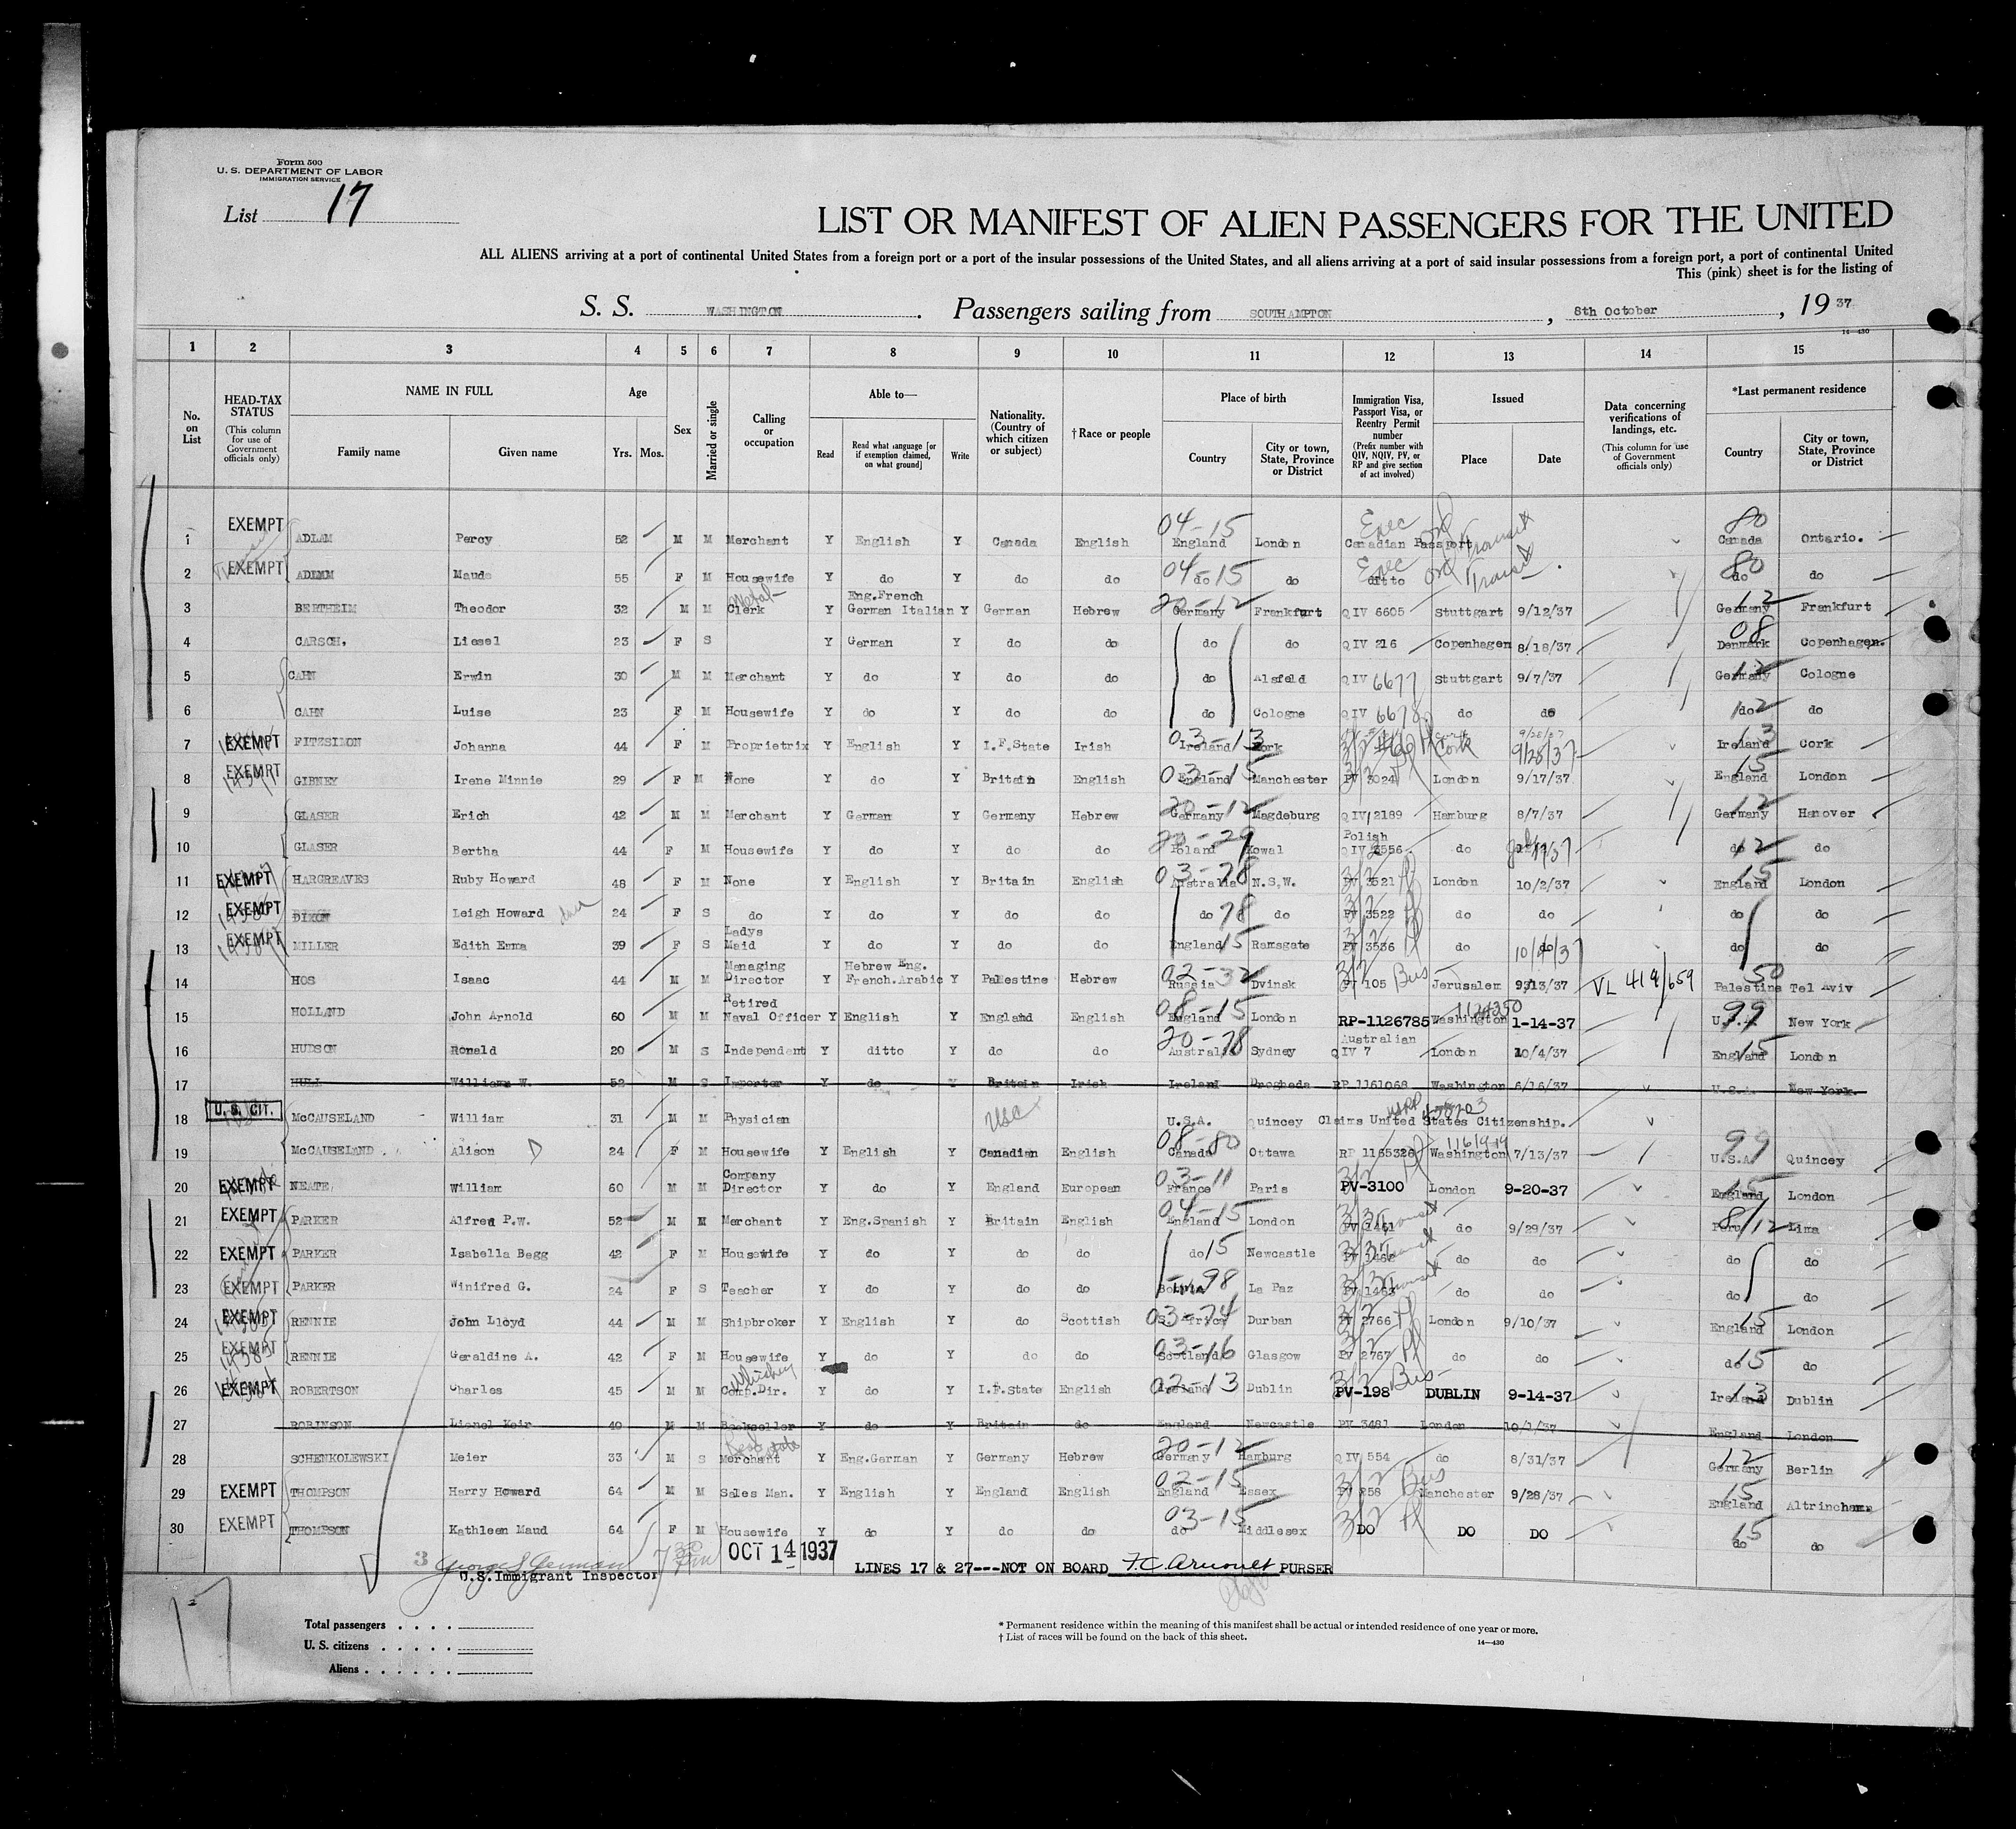 Form 500
U. S. DEPARTMENT OF LABOR
IMMIGRATION SERVICE
List 17
LIST OR MANIFEST OF ALIEN PASSENGERS FOR THE UNITED
ALL ALIENS arriving at a port of continental United States from a foreign port or a port of the insular possessions of the United States, and all aliens arriving at a port of said insular possessions from a foreign port, a port of continental United
This (pink) sheet is for the listing of
S. S. WASHINGTON. Passengers sailing from SOUTHAMPTON, 8th October, 19 37
14-430
1 2 3 4 5 6 7 8 9 10 11 12 13 14 15
No. on List
HEAD-TAX STATUS (This column for use of Government officials only)
NAME IN FULL Family name Given name
Age Yrs. Mos.
Sex
Married or single
Calling or occupation
Able to— Read Read what language [or if exemption claimed, on what ground] Write
Nationality. (Country of which citizen or subject)
† Race or people
Place of birth Country City or town, State, Province or District
Immigration Visa, Passport Visa, or Reentry Permit number (Prefix number with QIV, NQIV, PV, or RP and give section of act involved)
Issued Place Date
Data concerning verifications of landings, etc. (This column for use of Government officials only)
*Last permanent residence Country City or town, State, Province or District
1 EXEMPT ADLAM Percy 52 M M Merchant Y English Y Canada English 04-15 England London Exec ord Transit Canadian Passport 80 Canada Ontario.
2 EXEMPT Maude 55 F M Housewife Y do Y do do 04-15 do do Exec ord Transit ditto 80 do do
3 BERTHEIM Theodor 32 M M Metal- Clerk Y Eng.French German Italian Y German Hebrew 20-12 Germany Frankfurt QIV 6605 Stuttgart 9/12/37 12 Germany Frankfurt
4 CARSCH. Liesel 23 F S Y German Y do do do do QIV 216 Copenhagen 8/18/37 08 Denmark Copenhagen.
5 CAHN Erwin 30 M M Merchant Y do Y do do do Alsfeld QIV 6677 Stuttgart 9/7/37 12 Germany Cologne
6 CAHN Luise 23 F M Housewife Y do Y do do do Cologne QIV 6678 do do 12 do do
7 EXEMPT FITZSIMON Johanna 44 F M Proprietrix Y English Y I.F.State Irish 03-13 Ireland Cork 3/2 Cork 9/28/37 13 Ireland Cork
8 EXEMPT GIBNEY Irene Minnie 29 F M None Y do Y Britain English 03-15 England Manchester PV 3024 London 9/17/37 15 England London
9 GLASER Erich 42 M M Merchant Y German Y Germany Hebrew 20-12 Germany Magdeburg QIV 2189 Hamburg 8/7/37 12 Germany Hanover
10 GLASER Bertha 44 F M Housewife Y do Y do do 20-29 Poland Kowal Polish QIV do 12 do do
11 EXEMPT HARGREAVES Ruby Howard 48 F M None Y English Y Britain English 03-78 Australia N.S.W. 3/2 PV 3521 London 10/2/37 15 England London
12 EXEMPT DIXON Leigh Howard 24 F S do Y do Y do do do 78 do 3/2 PV 3522 do do do do
13 EXEMPT MILLER Edith Emma 39 F S Ladys Maid Y do Y do do England 15 Ramsgate 3/2 PV 3536 do do do
14 HOS Isaac 44 M M Managing Director Y Hebrew Eng. French.Arabic Y Palestine Hebrew 02-32 Russia Dvinsk 3/2 Bus PV 105 Jerusalem 9/13/37 VL 419/659 50 Palestine Tel Aviv
15 HOLLAND John Arnold 60 M M Retired Naval Officer Y English Y England English 08-15 England London RP-1126785 Washington 1-14-37 99 U.S.A. New York
16 HUDSON Ronald 20 M S Independent Y ditto Y do do 20-78 Australia Sydney Australian QIV 7 London 10/4/37 15 England London
17 HULL William W. 52 M S Importer Y do Y Britain Irish Ireland Drogheda RP 1161068 Washington 6/16/37 U.S.A. New York.
18 U. S. CIT. McCAUSELAND William 31 M M Physician USC U.S.A. Quincey Claims United States Citizenship.
19 McCAUSELAND Alison D 24 F M Housewife Y English Y Canadian English 08-80 Canada Ottawa RP 1165320 Washington 7/13/37 99 U.S.A Quincey
20 EXEMPT NEATE William 60 M M Company Director Y do Y England European 03-11 France Paris PV-3100 London 9-20-37 15 England London
21 EXEMPT PARKER Alfred P.W. 52 M M Merchant Y Eng.Spanish Y Britain English 04-15 England London PV 1461 do 9/29/37 Peru Lima
22 EXEMPT PARKER Isabella Begg 42 F M Housewife Y do Y do do do 15 Newcastle do do do do
23 EXEMPT PARKER Winifred G. 24 F S Teacher Y do Y do do 98 La Paz PV 1463 do do do do
24 EXEMPT RENNIE John Lloyd 44 M M Shipbroker Y English Y do Scottish 03-74 Durban 3/2 PV 2766 London 9/10/37 15 England London
25 EXEMPT RENNIE Geraldine A. 42 F M Housewife Y do Y do do 03-16 Scotland Glasgow 3/2 PV 2767 do do 15 do do
26 EXEMPT ROBERTSON Charles 45 M M Whiskey Comp.Dir. Y do Y I.F.State English 02-13 Ireland Dublin 3/2 Bus- PV-198 DUBLIN 9-14-37 13 Ireland Dublin
27 ROBINSON Lionel Keir 40 M M Bookseller Y do Y Britain do England Newcastle PV 3481 London 10/1/37 England London
28 SCHENKOLEWSKI Meier 33 M S Real estate Merchant Y Eng.German Y Germany Hebrew 20-12 Germany Hamburg QIV 554 do 8/31/37 12 Germany Berlin
29 EXEMPT THOMPSON Harry Howard 64 M M Sales Man. Y English Y England English 02-15 England Essex 3/2 Bus PV 258 Manchester 9/28/37 15 England Altrincham.
30 EXEMPT THOMPSON Kathleen Maud 64 F M Housewife Y do Y do do 03-15 do Middlesex 3/2 DO DO DO 15 do do
3 OCT 14 1937 LINES 17 & 27---NOT ON BOARD F.C. Arnoult PURSER
U.S.Immigrant Inspector
17
Total passengers
U. S. citizens
Aliens
* Permanent residence within the meaning of this manifest shall be actual or intended residence of one year or more.
† List of races will be found on the back of this sheet.
14-430